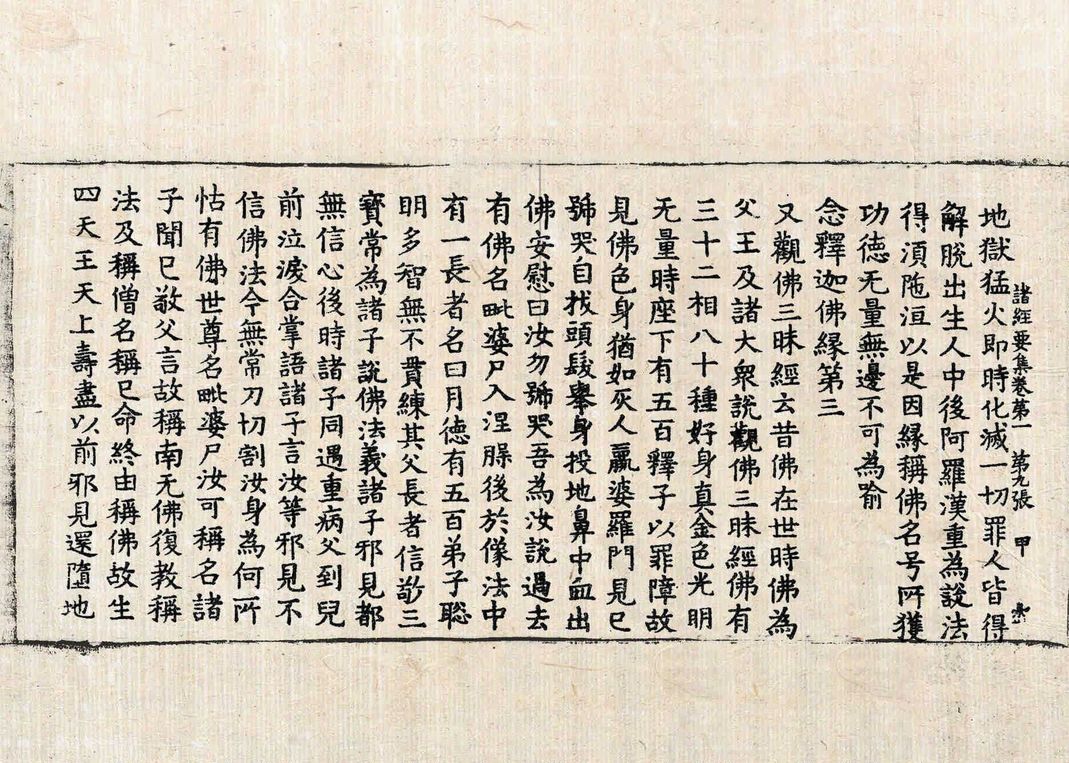 諸経要集卷第一 第九張 甲
地獄猛火即時化滅一切罪人皆得
解脫出生人中後阿羅漢重為說法
得湏陁洹以是因縁稱佛名号所獲
功徳无量無邊不可為喻
念釋迦佛縁第三
又觀佛三昧經云昔佛在世時佛為
父王及諸大衆說觀佛三昧經佛有
三十二相八十種好身真金色光明
无量時座下有五百釋子以罪障故
見佛色身猶如灰人羸婆羅門見已
號哭自拔頭髮舉身投地鼻中血出
佛安慰曰汝勿號哭吾為汝說過去
有佛名毗婆尸入涅槃後於像法中
有一長者名曰月徳有五百弟子聡
明多智無不貫練其父長者信敬三
寶常為諸子說佛法義諸子邪見都
無信心後時諸子同遇重病父到兒
前泣淚合掌語諸子言汝等邪見不
信佛法今無常刀切割汝身為何所
怙有佛世尊名毗婆尸汝可稱名諸
子聞已敬父言故稱南无佛復教稱
法及稱僧名稱已命終由稱佛故生
四天王天上壽盡以前邪見還墮地